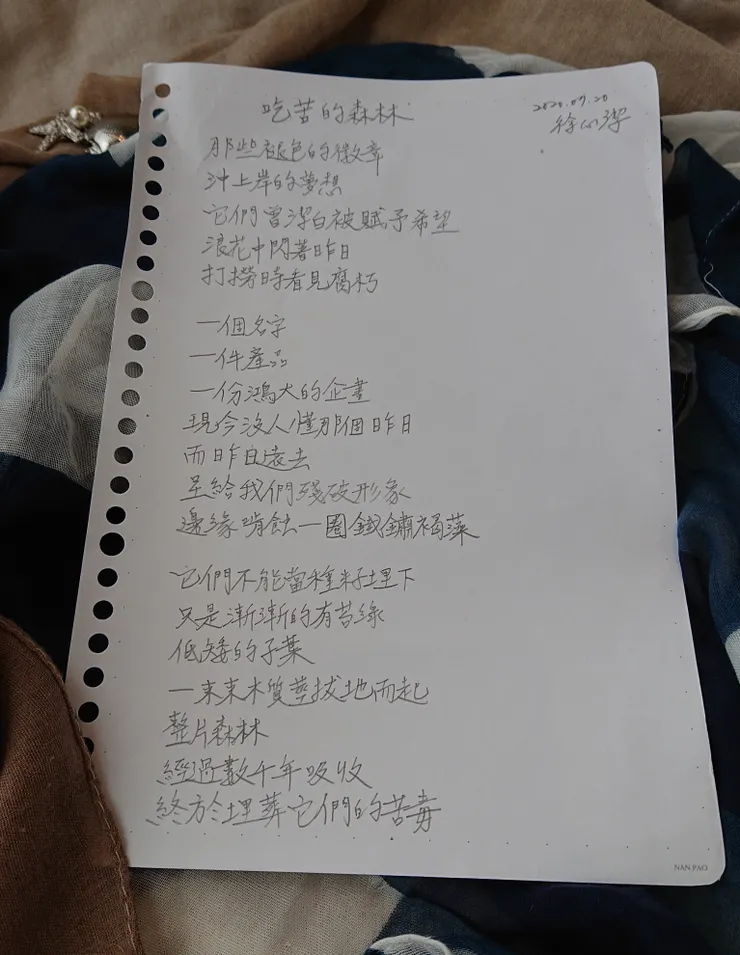 吃苦的森林
2020.07.20
徐心潔
那些褪色的徽章
沖上岸的夢想
它們曾潔白被賦予希望
浪花中閃著昨日
打撈時看見腐朽
一個名字
一件產品
一份鴻大的企畫
現今沒人懂那個昨日
而昨日遠去
呈給我們殘破形象
邊緣啃蝕一圈鐵鏽褐藻
它們不能當種籽埋下
只是漸漸的有苔綠
低矮的子葉
一束束木質莖拔地而起
整片森林
經過數千年吸收
終於埋葬它們的苦毒
NAN PAO